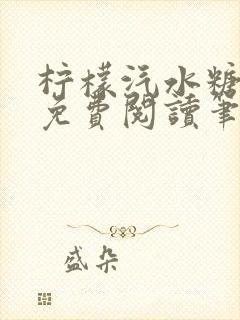 柠檬汽水糖
免費閱讀筆
盛朵